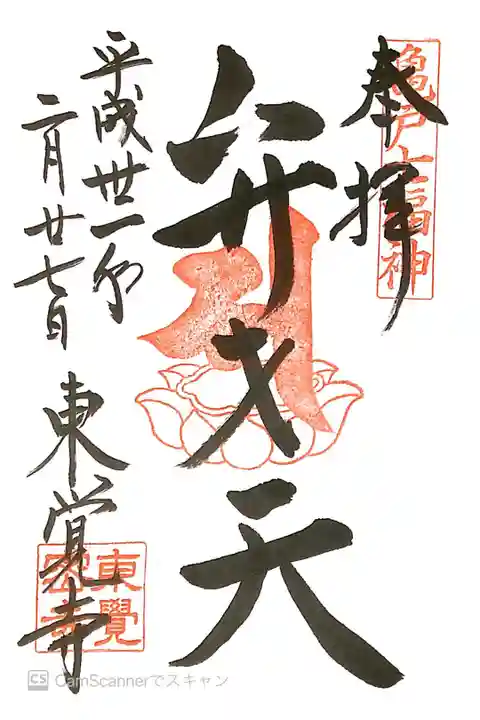 奉拝
亀戸七福神
弁才天
平成丗一年
二月廿七日
東覚寺
東覺
密寺
CS CamScannerでスキャン